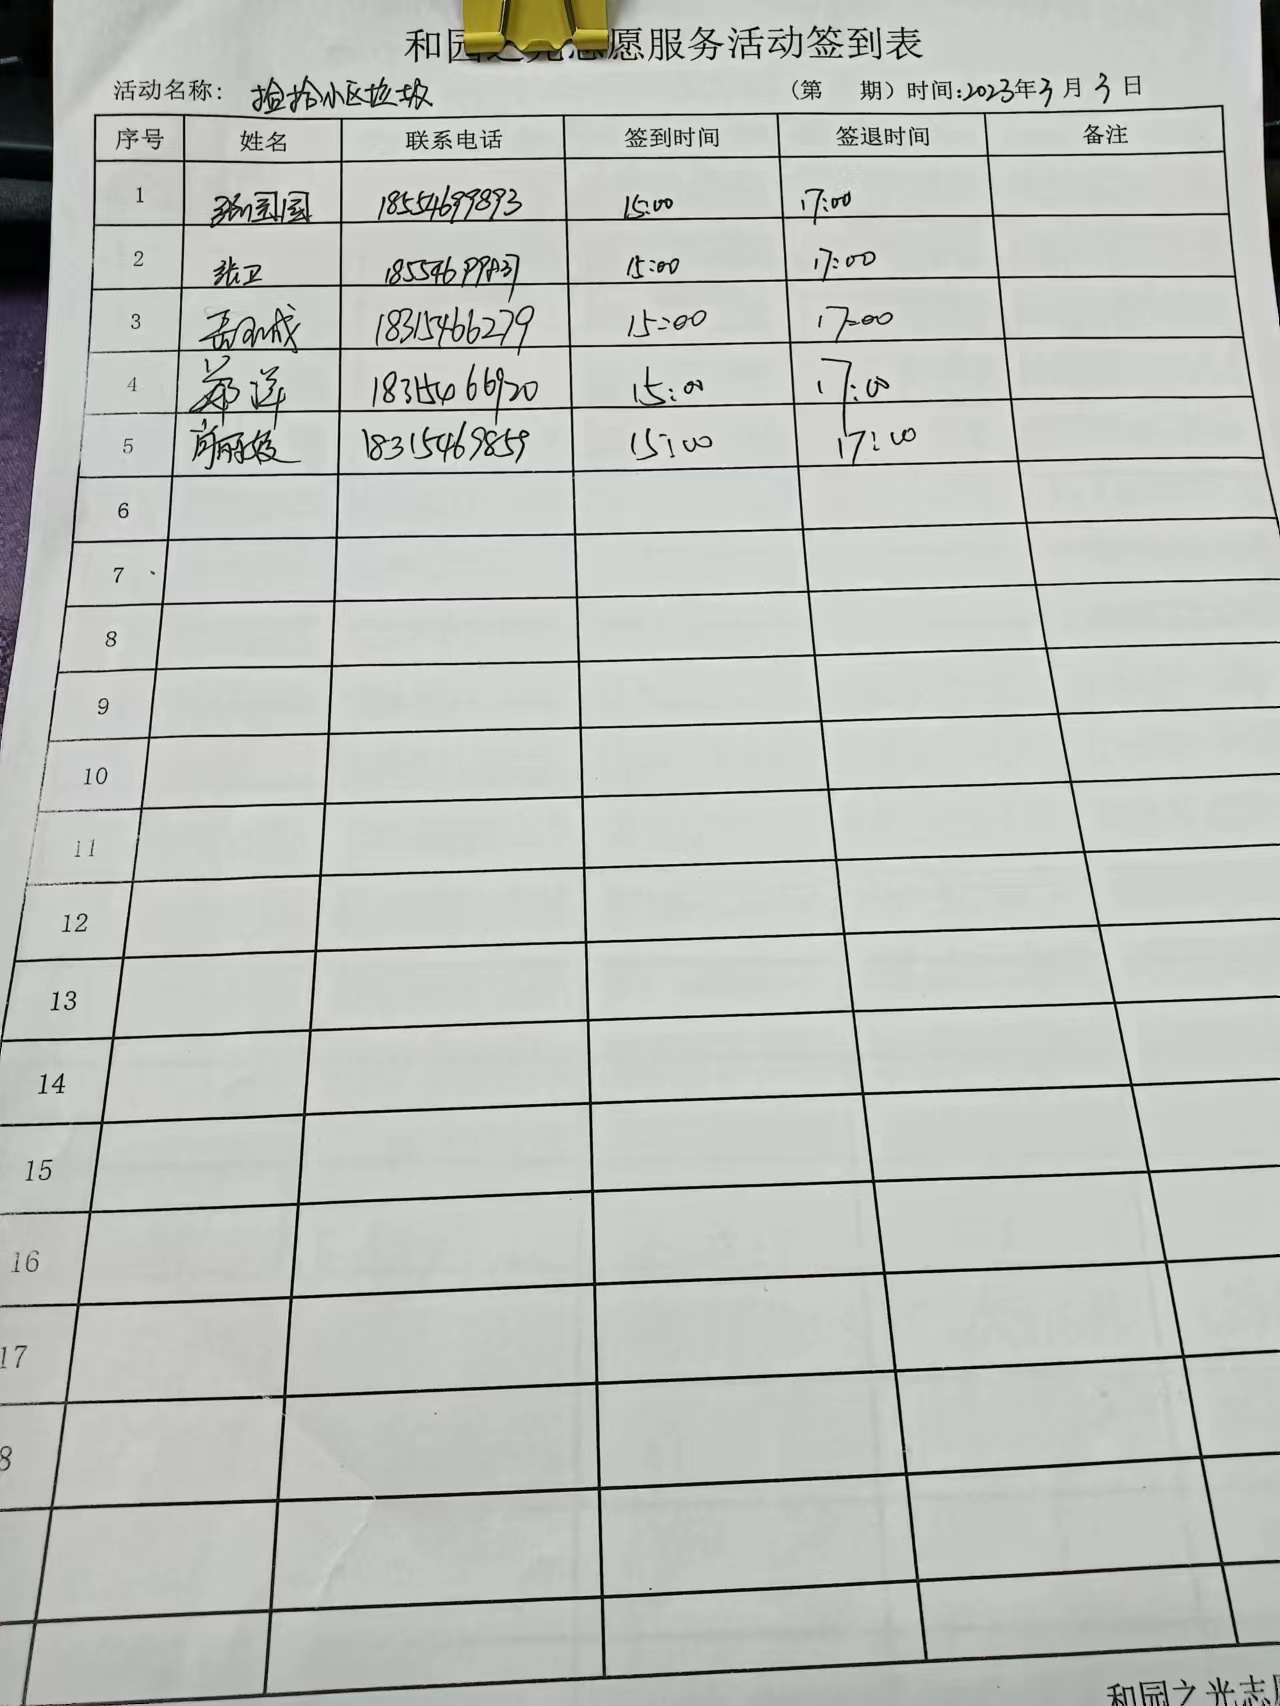 和园之光志愿服务活动签到表
活动名称：捡拾小区垃圾 （第 期）时间:2023年3月3日
序号 姓名 联系电话 签到时间 签退时间 备注
1 张国国 18554699893 15:00 17:00
2 张卫 15:00 17:00
3 18315466279 15:00 17:00
4 郑萍 18315466920 15:00 17:00
5 18315469859 15:00 17:00
6
7
8
9
10
11
12
13
14
15
16
17
8
和园之光志愿